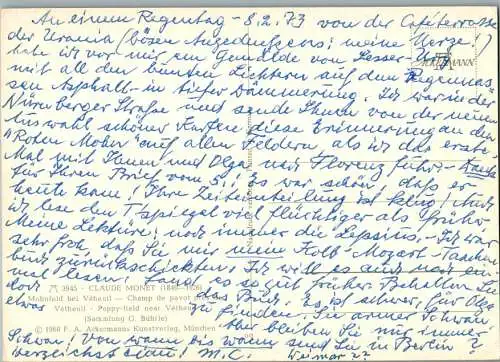 An einem Regentag - 8.2.73 von der Caféterrasse
der Urania (bösen Angedenkens: meine Herze!)
habe ich vor mir ein Gemälde von Lesser-Ury
mit all den bunten Lichtern auf dem Regennas-
sen Asphalt - in tiefer Dämmerung. Ich war in der
Nürnberger Straße und sende Ihnen von der neuen
Auswahl schöner Karten diese Erinnerung an den
"Roten Mohn" auf allen Feldern, als ich das erste
Mal mit Ihnen und Olga nach Florenz fuhr - Dank
für Ihren Brief vom 5.! Es war schön, daß er
heute kam! Ihre Zeiteinteilung ist klug! Auch
ich lese den T'spiegel viel flüchtiger als früher
Meine Lektüre: noch immer die Lepsius - Ich war
sehr froh, daß Sie mir meine Kolb-Mozart-Taschen
buch zurückschickten: Ich will es auch noch ein-
mal lesen - hatte es so gut früher. Behalten Sie
das Buch. Es ist schwer, für Olga
etwas zu finden. Sie armer Schwan
aber bleiben Sie nur immer
Schwan! Von wann bis wann sind Sie in Berlin?
Verzeichstaum! M.C.
ACKERMANN
3945 - CLAUDE MONET (1840-1926)
Mohnfeld bei Vétheuil — Champ de pavot
Vétheuil - Poppy-field near Vétheuil
(Sammlung G. Bührle)
© 1968 F. A. Ackermanns Kunstverlag, München